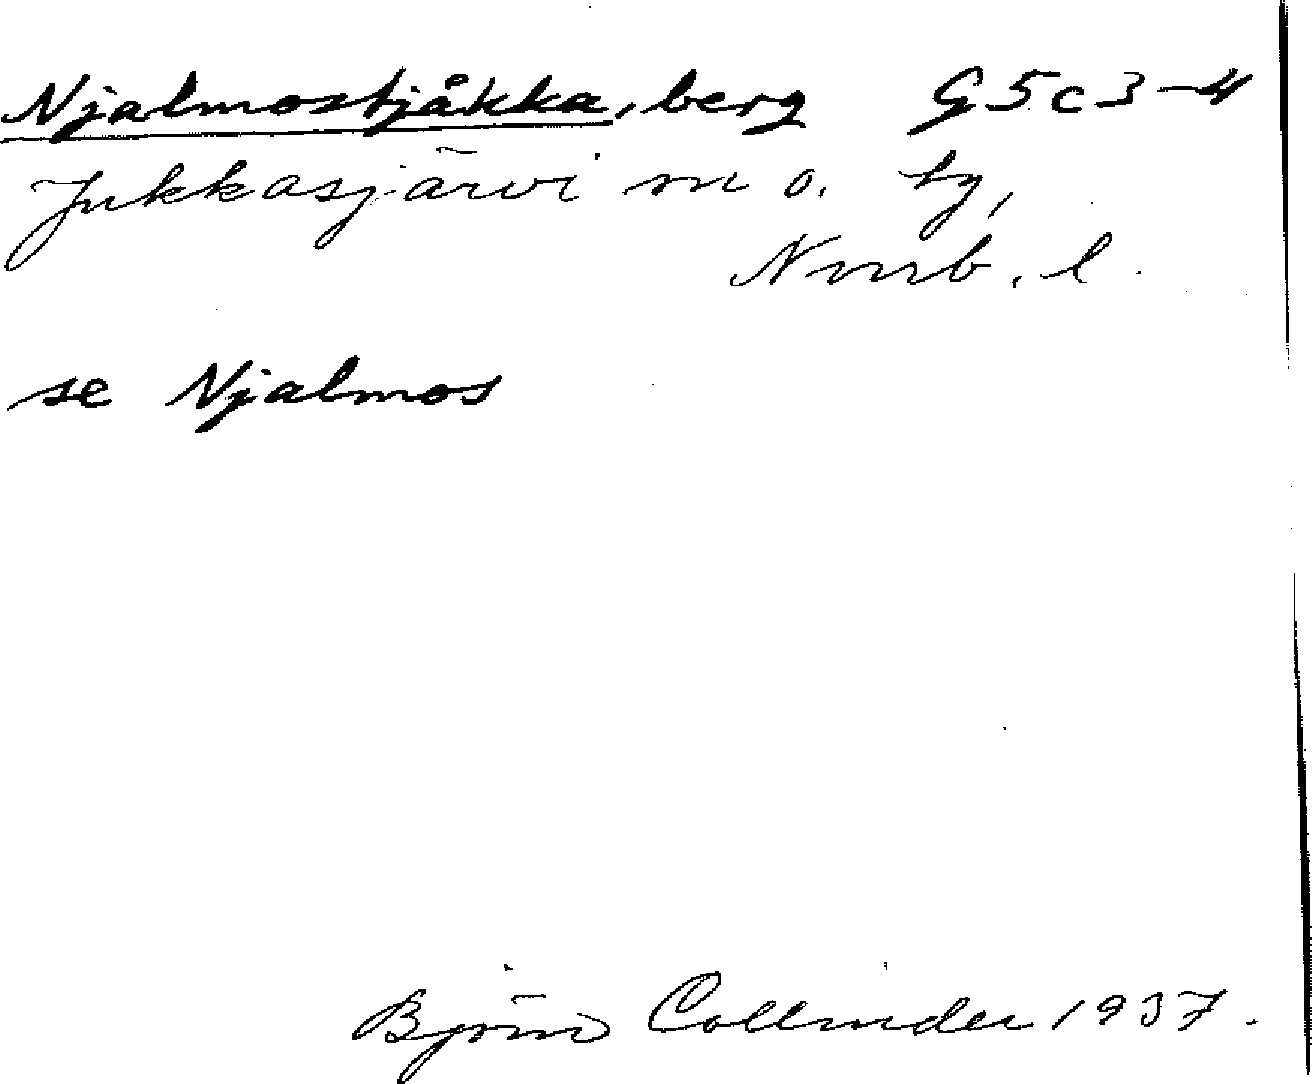 Njalmostjåkka, berg G5c3-4
Jukkasjärvi sn o. ty,
Nmrb. l.
se Njalmos
Björn Collinder 1937.